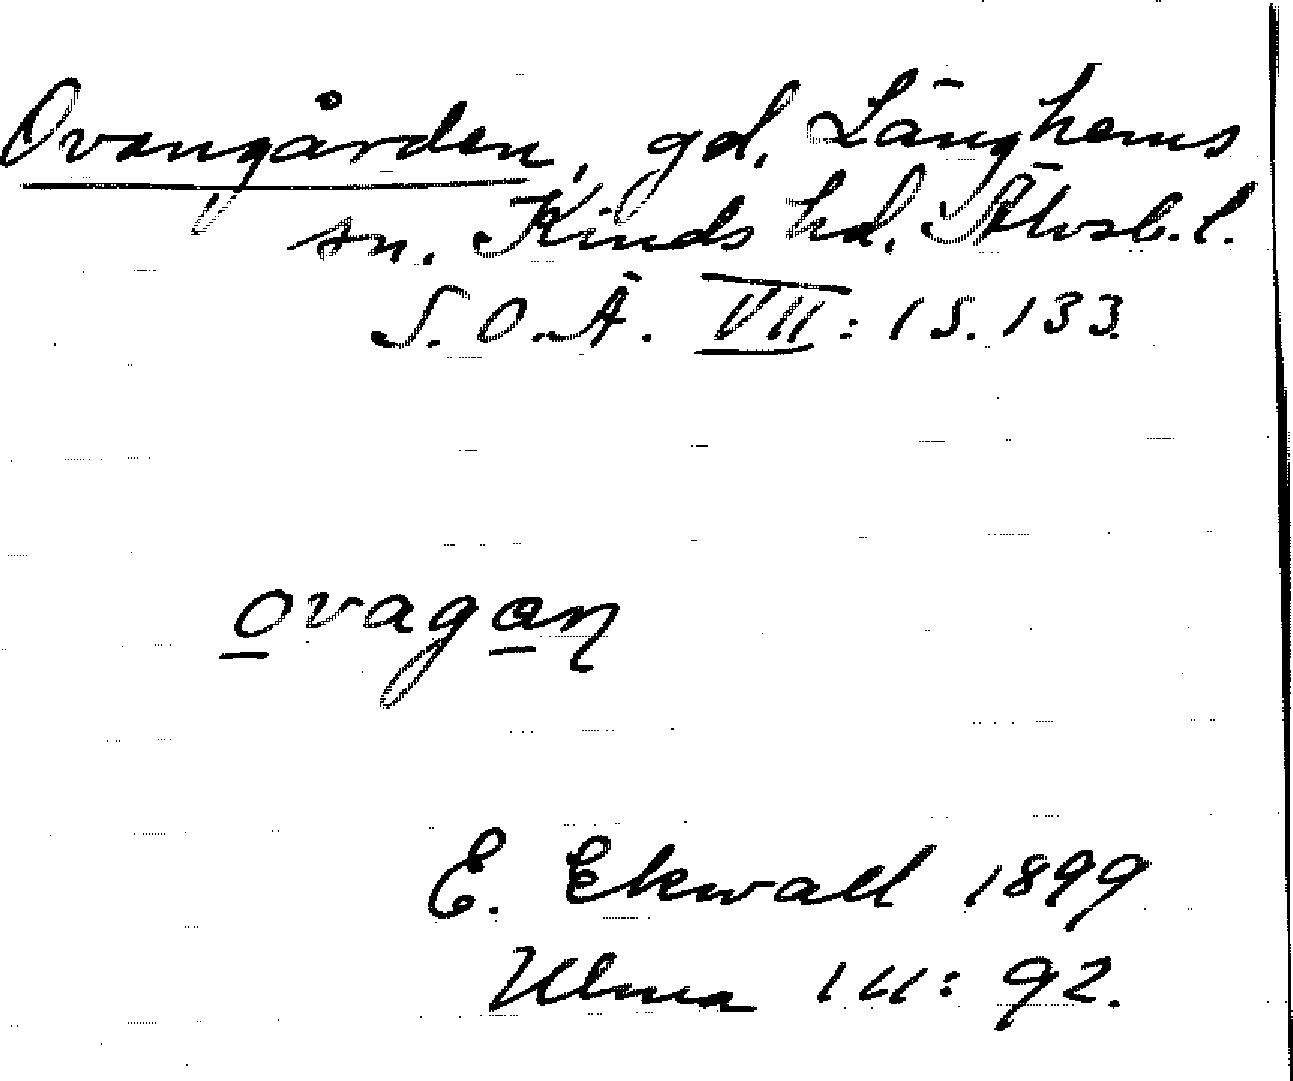 Ovangården, gd, Länghems
sn. Kinds hd. Älvsb. l.
S. O. Ä. VII: 1 S. 133.
ovagan
E. Ekwall 1899
Ulma 111: 92.